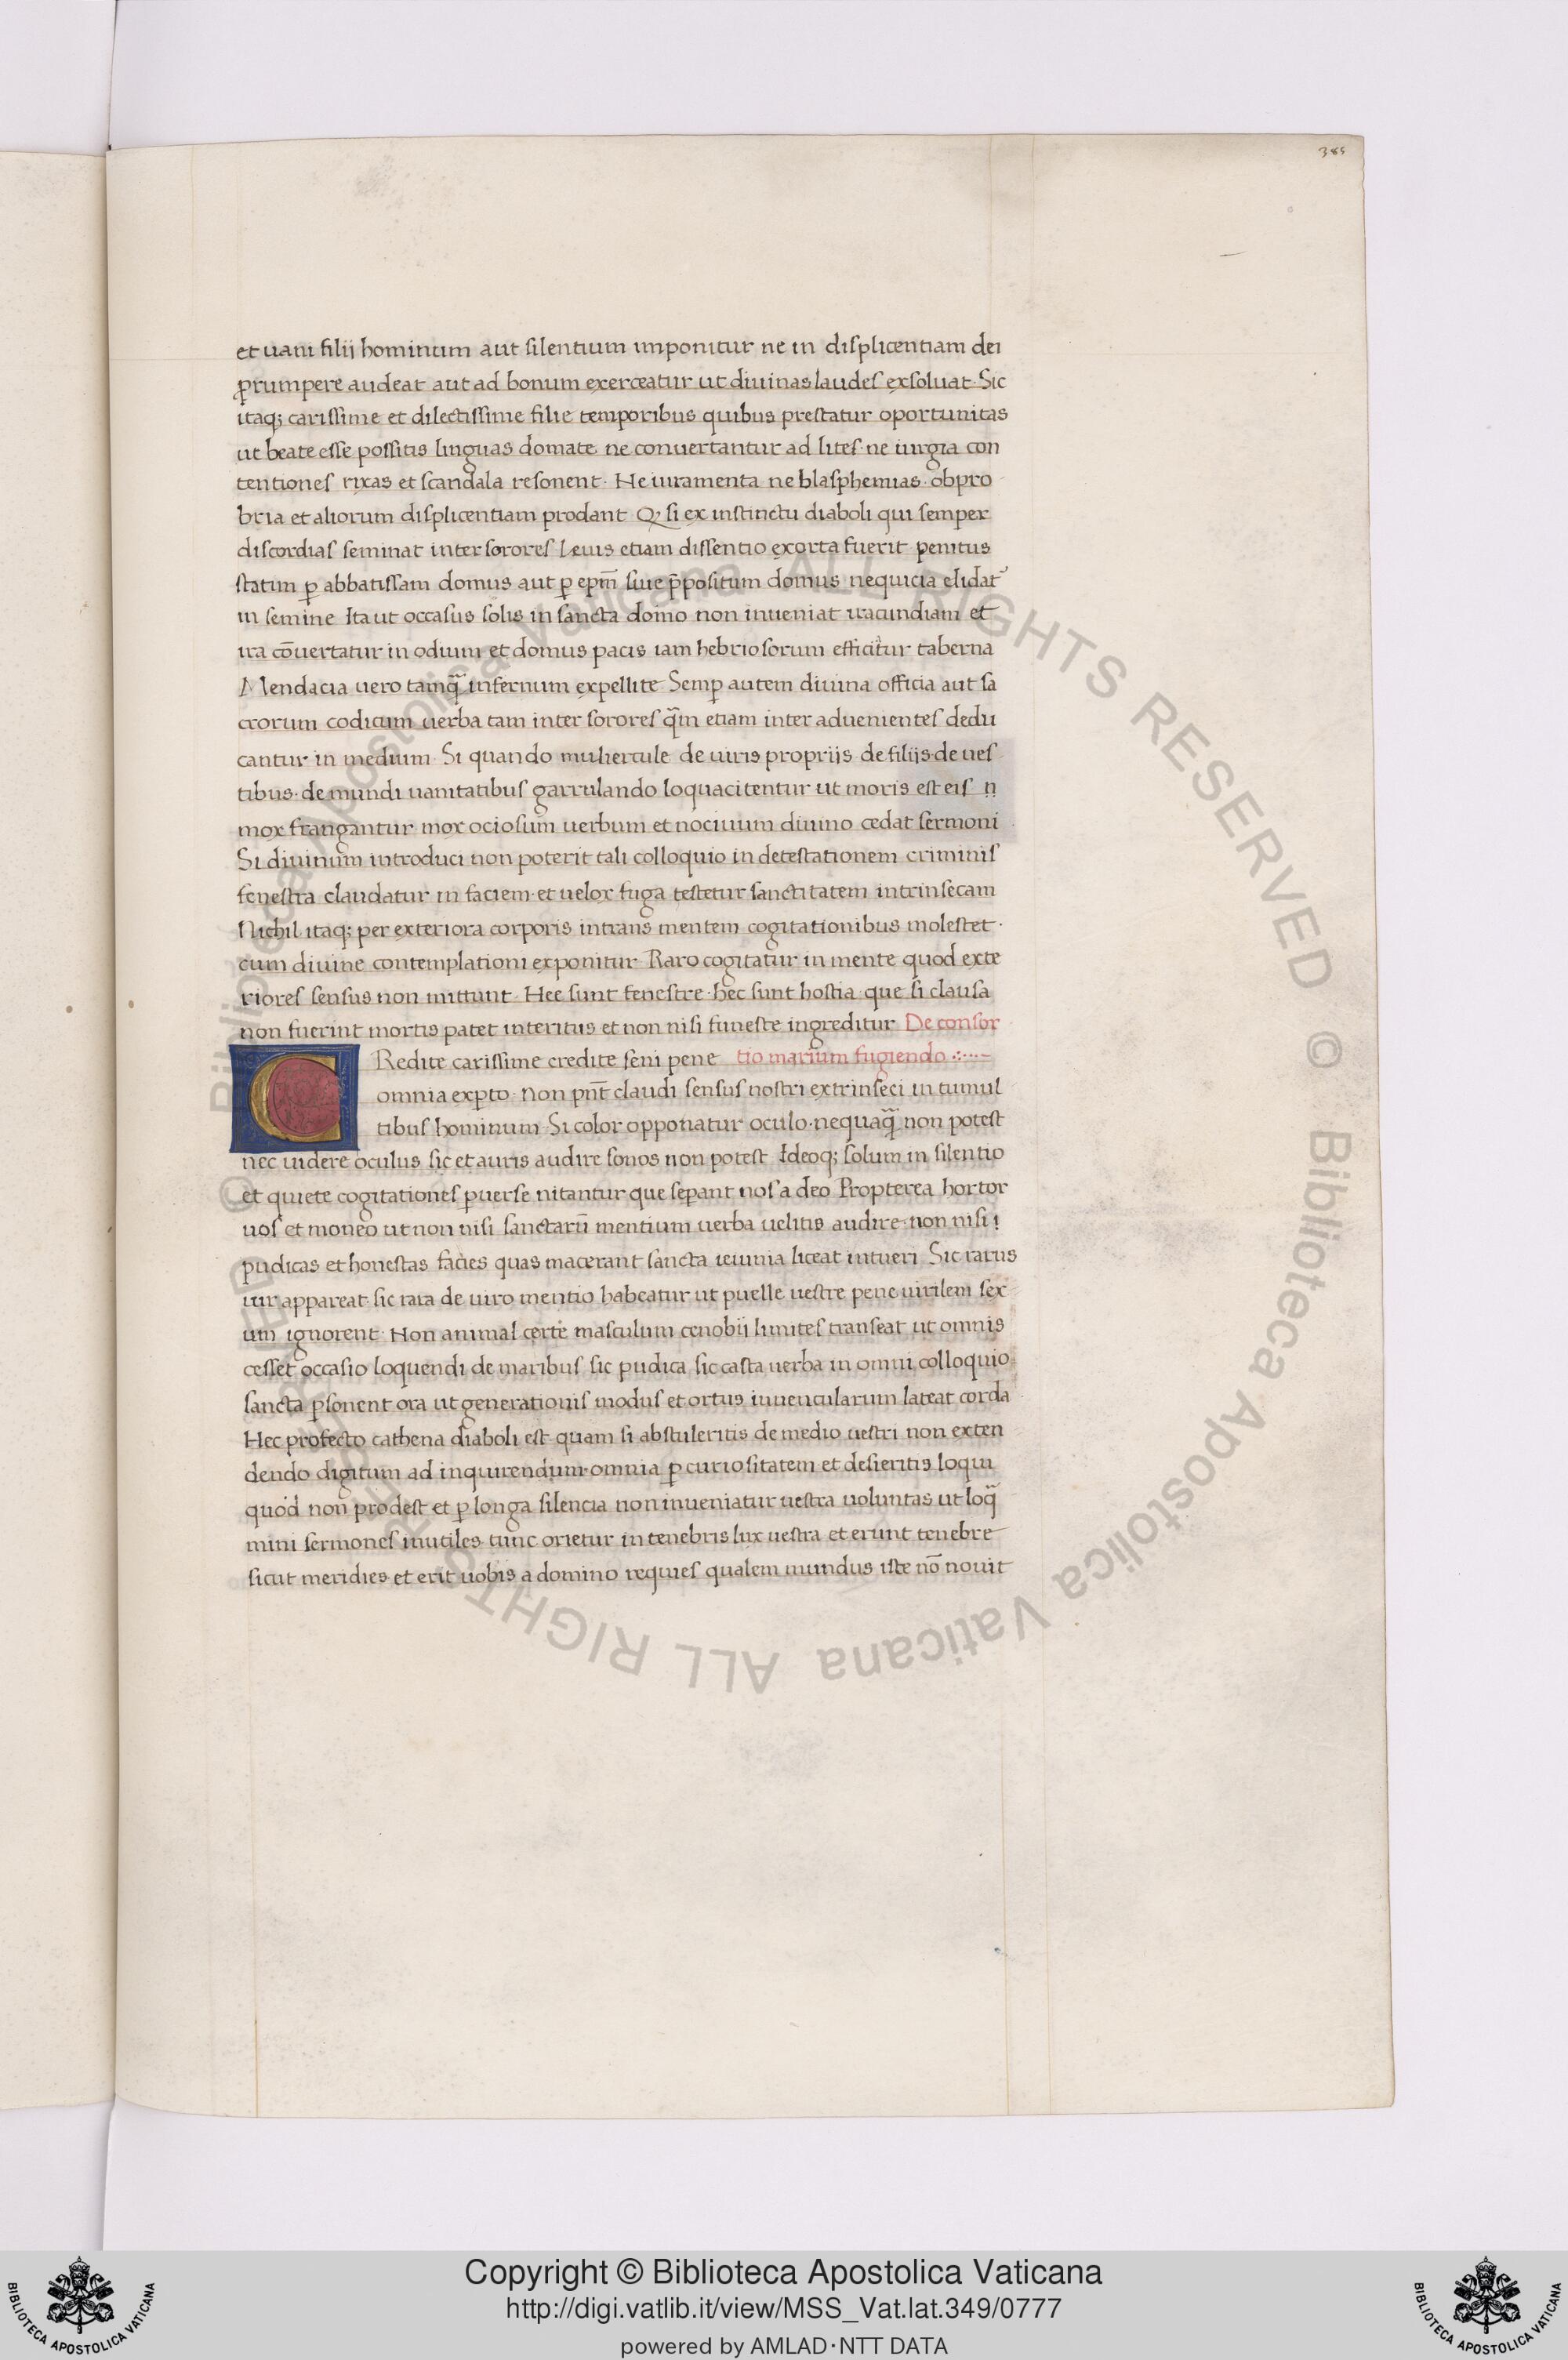 385
et uani filij hominum aut silentium imponitur ne in displicentiam dei
ꝓrumpere audeat aut ad bonum exerceatur ut diuinas laudes exsoluat. Sic
itaq; carissime et dilectissime filie temporibus quibus prestatur oportunitas
ut beate esse possitis linguas domate. ne conuertantur ad lites. ne iurgia con
tentiones rixas et scandala resonent. Ne iuramenta ne blasphemias. obpro
bria et aliorum displicentiam prodant. Qͥ si ex instinctu diaboli qui semper
discordias seminat inter sorores leuis etiam dissentio exorta fuerit penitus
statim ꝑ abbatissam domus aut ꝑ epm̄ siue p̄positum domus nequicia elidat᷑
in semine Ita ut occasus solis in sancta domo non inueniat iracundiam et
ira cōuertatur in odium et domus pacis iam hebriosorum efficitur taberna
Mendacia uero tamq̄ infernum expellite. Semꝑ autem diuina officia aut sa
crorum codicum uerba tam inter sorores q̄m etiam inter aduenientes dedu
cantur in medium. Si quando muliercule de uiris proprijs. de filijs. de ues
tibus. de mundi uanitatibus garrulando loquacitentur ut moris est eis n̄
mox frangantur. mox ociosum uerbum et nociuum diuino cedat sermoni
Si diuinum introduci non poterit tali colloquio in detestationem criminis
fenestra claudatur in faciem. et uelox fuga testetur sanctitatem intrinsecam
Nichil itaq; per exteriora corporis intrans mentem cogitationibus molestet.
cum diuine contemplationi exponitur. Raro cogitatur in mente quod exte
riores sensus non mittunt. Hee sunt fenestre. hec sunt hostia que si clausa
non fuerint mortis patet interitus et non nisi funeste ingreditur De consor
CRedite carissime credite seni pene tio marium fugiendo
omnia exꝑto. Non pn̄t claudi sensus nostri extrinseci in tumul
tibus hominum. Si color opponatur oculo. nequaq̄ non potest
nec uidere oculus sic et auris audire sonos non potest Ideoq; solum in silentio
et quiete cogitationes ꝑuerse nitantur que seꝑant nos a deo Propterea hortor
uos et moneo ut non nisi sanctarū mentium uerba uelitis audire. non nisi
pudicas et honestas facies quas macerant sancta ieiunia liceat intueri. Sic rarus
uir appareat. sic rara de uiro mentio habeatur ut puelle uestre pene uirilem sex
um ignorent. Non animal certe masculum cenobij limites transeat ut omnis
cesset occasio loquendi de maribus sic pudica sic casta uerba in omni colloquio
sancta ꝑsonent ora ut generationis modus et ortus iuuencularum lateat corda
Hec profecto cathena diaboli est quam si abstuleritis de medio uestri non exten
dendo digitum ad inquirendum omnia ꝑ curiositatem et desieritis loqui
quod non prodest et ꝑ longa silencia non inueniatur uestra uoluntas ut loq̄
mini sermones inutiles tunc orietur in tenebris lux uestra et erunt tenebre
sicut meridies et erit uobis a domino requies qualem mundus iste nō nouit
© Biblioteca Apostolica Vaticana ALL RIGHTS RESERVED © Biblioteca Apostolica Vaticana ALL RIGHTS RESERVED
Copyright © Biblioteca Apostolica Vaticana
http://digi.vatlib.it/view/MSS_Vat.lat.349/0777
powered by AMLAD·NTT DATA
BIBLIOTECA APOSTOLICA VATICANA
BIBLIOTECA APOSTOLICA VATICANA